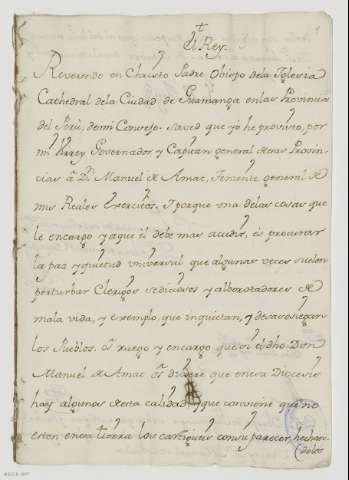 El Rey.
Reverendo en Christo Padre Obispo dela Iglesia
Cathedral dela Ciudad de Guamanga enlas Provincias
del Perú, demi Consejo. Saved que yo he proveido, por
mi Virrey Governador y Capitan general deesas Provin-
cias â Dn. Manuel de Amat, Teniente general de
mis Reales Exercitos. I porque una delas cosas que
le encargo y aque él debe mas acudir, es procurar
la paz y quietud universal que algunas veces suelen
perturbar Clerigos sediciosos y alborotadores de
mala vida, y exemplo que inquietan, y desasosiegan
los Pueblos. os ruego y encargo que si el dho. Don
Manuel de Amat os dixere que enesa Diocesis
hay algunos desta calidad y que combiene que no
esten enesa tierra los castigueis consu parecer, hechan-
dolos